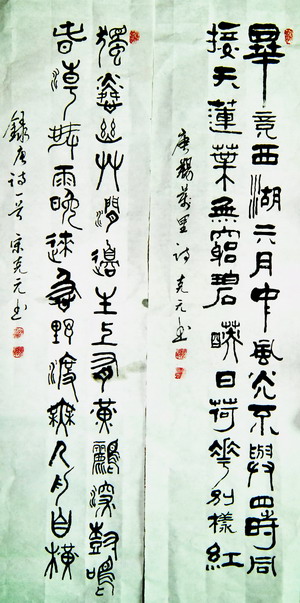 畢竟西湖六月中風光不與四時同
接天蓮葉無窮碧映日荷花別樣紅
唐楊萬里詩 克元书
獨憐幽草澗邊生上有黃鸝深樹鳴
春潮帶雨晚來急野渡無人舟自橫
録唐诗一首 宋克元书